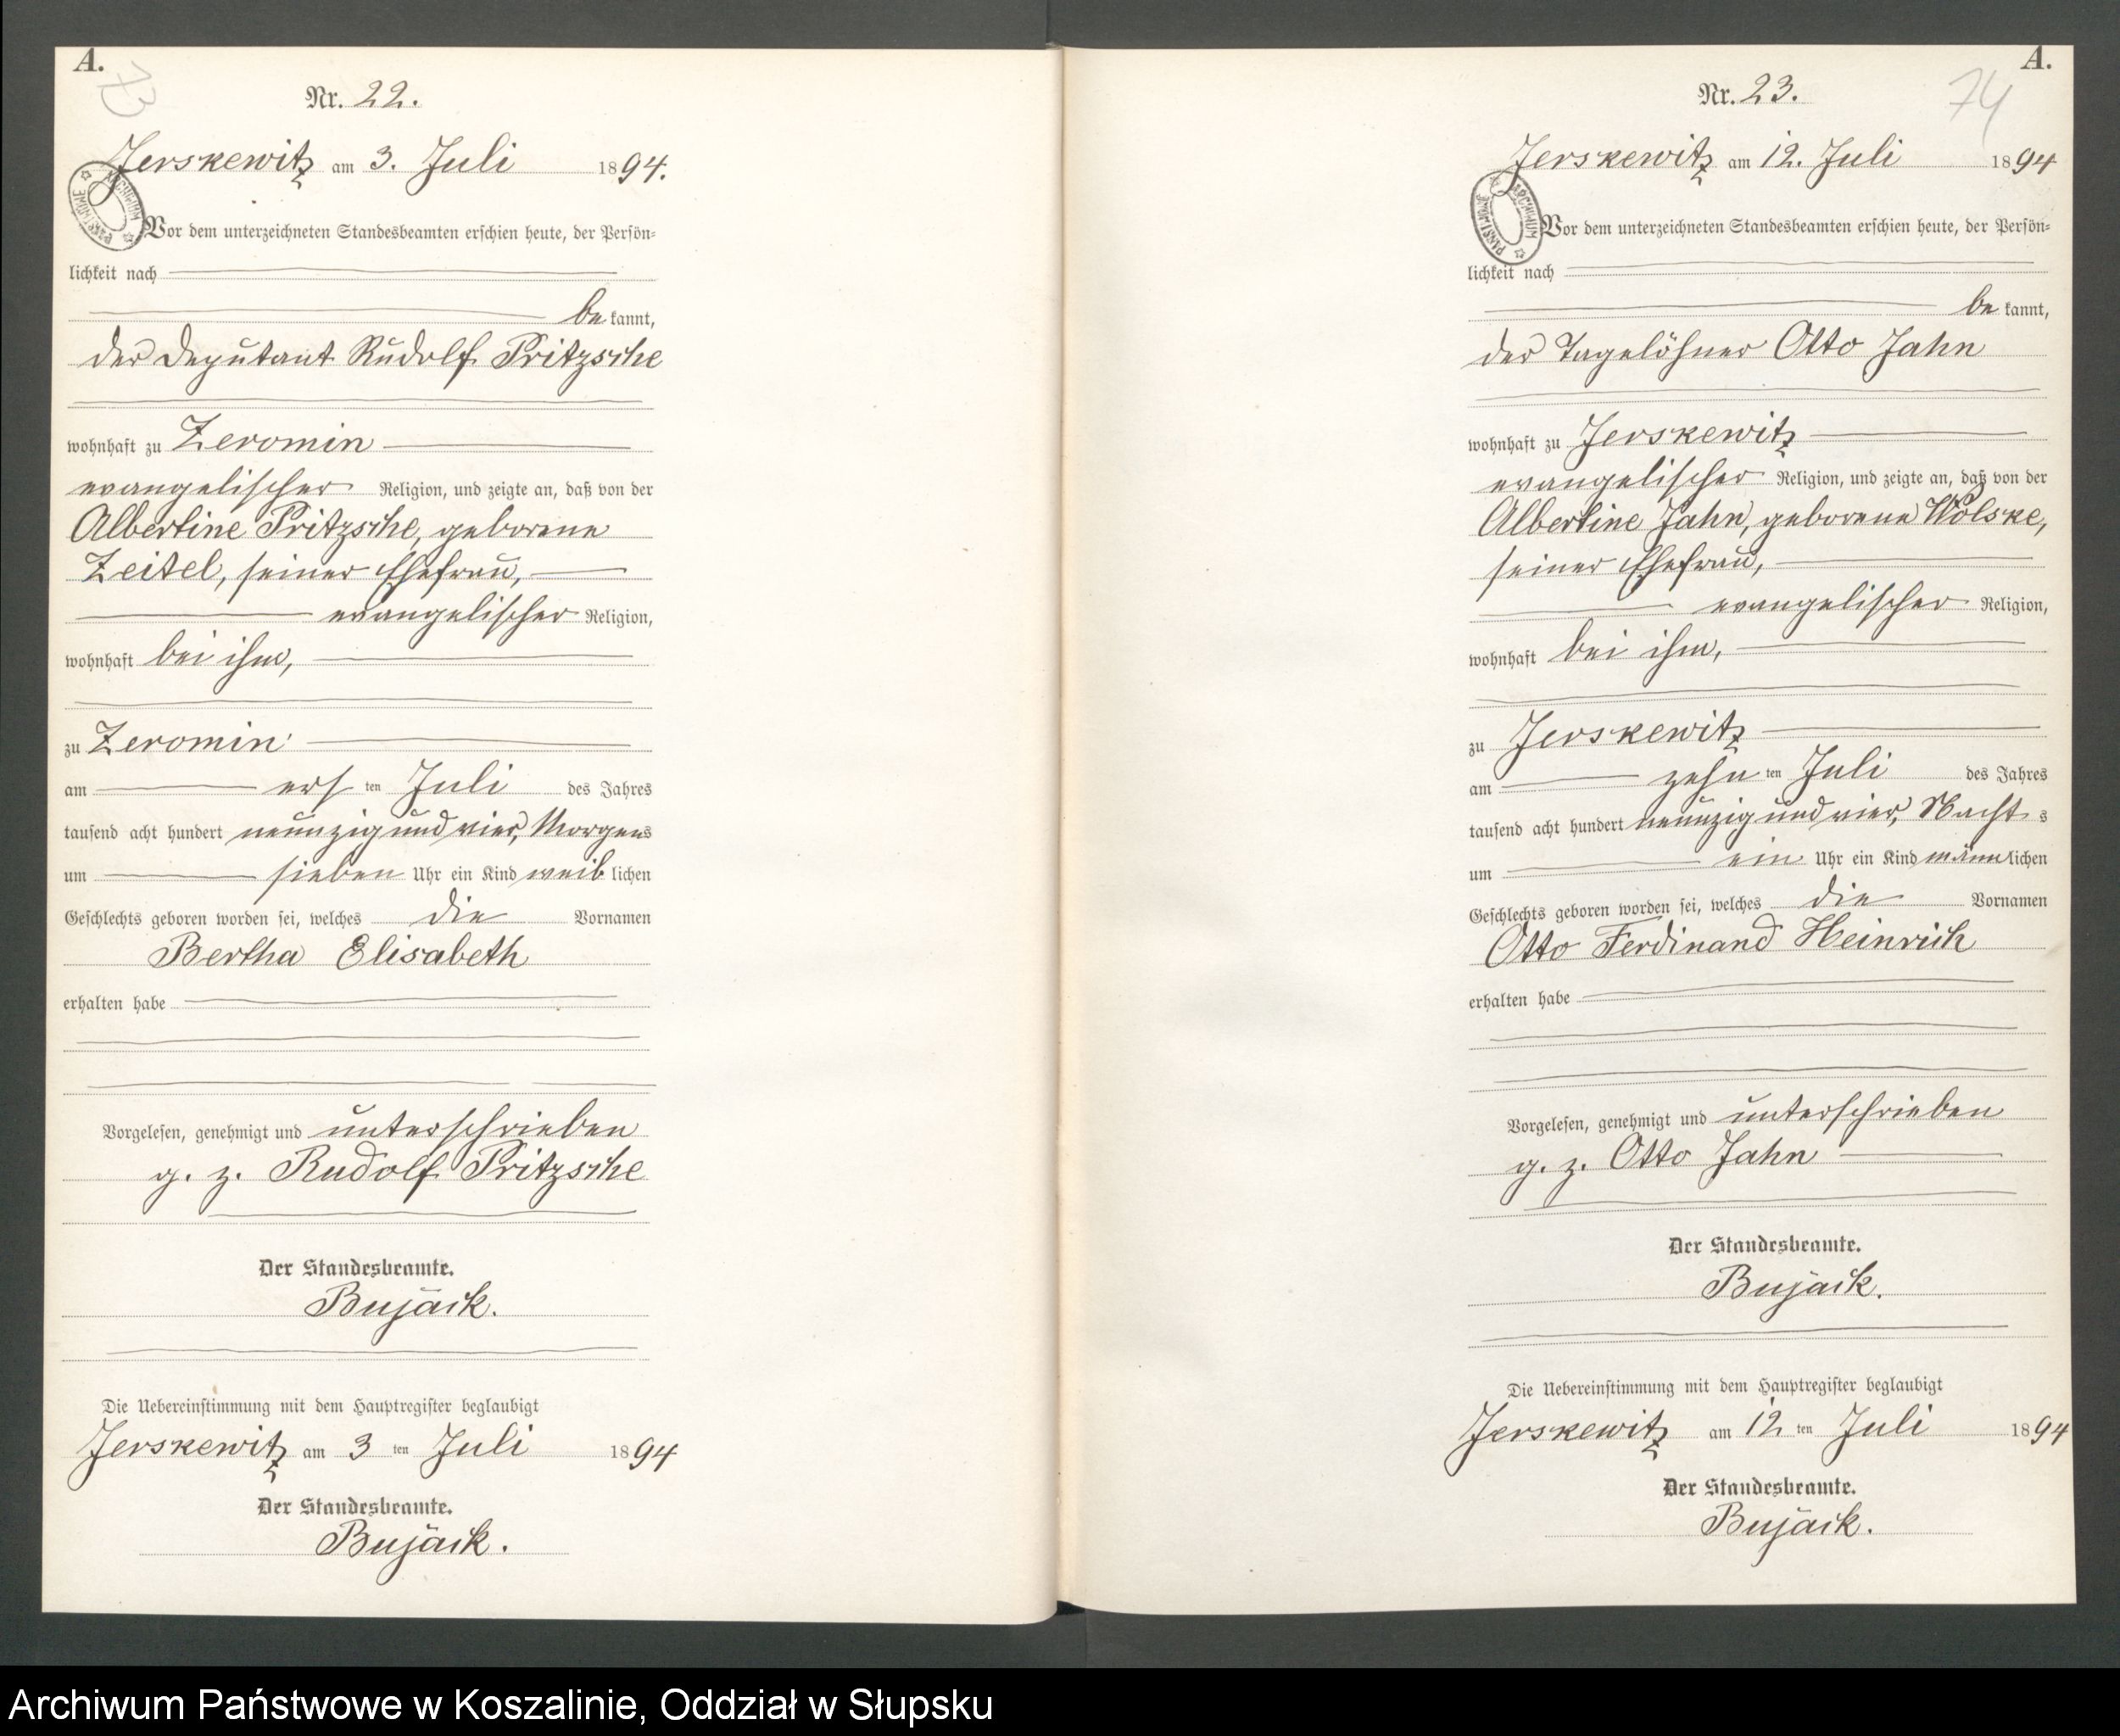 A.
73
Nr. 22.
Jerskewitz am 3. Juli 1894.
ARCHIWUM PAŃSTWOWE
Vor dem unterzeichneten Standesbeamten erschien heute, der Persön-
lichkeit nach
be kannt,
der Deputant Rudolf Pritzsche
wohnhaft zu Zeromin
evangelischer Religion, und zeigte an, daß von der
Albertine Pritzsche, geborene
Zeitel, seiner Ehefrau,
evangelischer Religion,
wohnhaft bei ihm,
zu Zeromin
am ersten Juli des Jahres
tausend acht hundert neunzig und vier, Morgens
um sieben Uhr ein Kind weiblichen
Geschlechts geboren worden sei, welches die Vornamen
Bertha Elisabeth
erhalten habe
Vorgelesen, genehmigt und unterschrieben
g. z. Rudolf Pritzsche
Der Standesbeamte.
Bujack.
Die Uebereinstimmung mit dem Hauptregister beglaubigt
Jerskewitz am 3 ten Juli 1894
Der Standesbeamte.
Bujack.
A.
74
Nr. 23.
Jerskewitz am 12. Juli 1894
ARCHIWUM PAŃSTWOWE
Vor dem unterzeichneten Standesbeamten erschien heute, der Persön-
lichkeit nach
be kannt,
der Tagelöhner Otto Jahn
wohnhaft zu Jerskewitz
evangelischer Religion, und zeigte an, daß von der
Albertine Jahn, geborene Wolske,
seiner Ehefrau,
evangelischer Religion,
wohnhaft bei ihm,
zu Jerskewitz
am zehn ten Juli des Jahres
tausend acht hundert neunzig und vier, Nachts
um ein Uhr ein Kind männlichen
Geschlechts geboren worden sei, welches die Vornamen
Otto Ferdinand Heinrich
erhalten habe
Vorgelesen, genehmigt und unterschrieben
g. z. Otto Jahn
Der Standesbeamte.
Bujack.
Die Uebereinstimmung mit dem Hauptregister beglaubigt
Jerskewitz am 12 ten Juli 1894
Der Standesbeamte.
Bujack.
Archiwum Państwowe w Koszalinie, Oddział w Słupsku